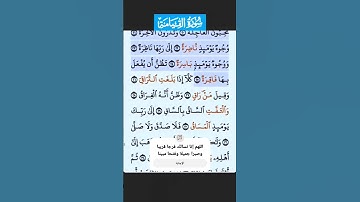 سُورَةُ الْقِيَامَةِ
تُحِبُّونَ الْعَاجِلَةَ ۝ وَتَذَرُونَ الْآخِرَةَ ۝
وُجُوهٌ يَوْمَئِذٍ نَّاضِرَةٌ ۝ إِلَىٰ رَبِّهَا نَاظِرَةٌ ۝
وَوُجُوهٌ يَوْمَئِذٍ بَاسِرَةٌ ۝ تَظُنُّ أَن يُفْعَلَ
بِهَا فَاقِرَةٌ ۝ كَلَّا إِذَا بَلَغَتِ التَّرَاقِيَ ۝
وَقِيلَ مَنْ رَاقٍ ۝ وَظَنَّ أَنَّهُ الْفِرَاقُ ۝
وَالْتَفَّتِ السَّاقُ بِالسَّاقِ ۝ إِلَىٰ رَبِّكَ
يَوْمَئِذٍ الْمَسَاقُ ۝ فَلَا صَدَّقَ وَلَا صَلَّىٰ
اللهم إنا نسألك فرجا قريبا
وصبرا جميلا وفتحا مبينا